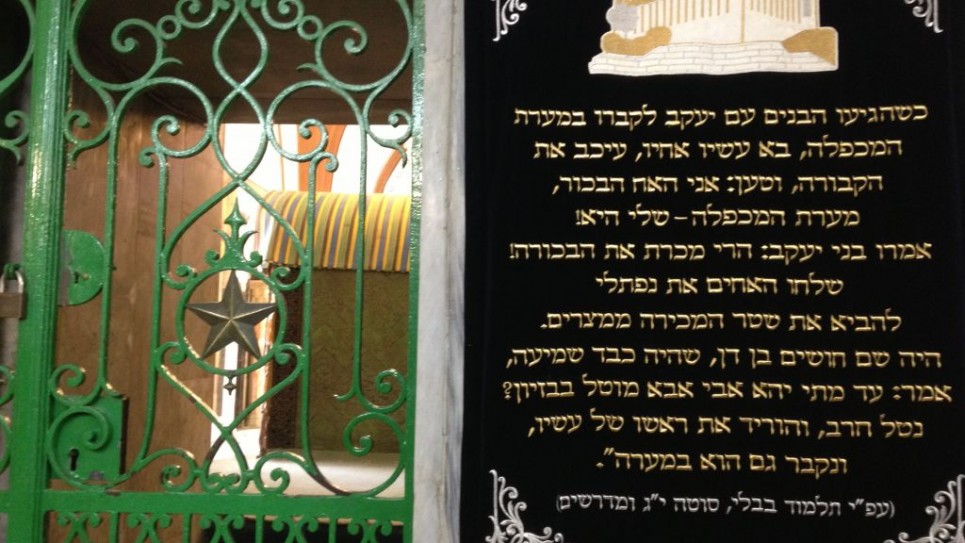 כשהגיעו הבנים עם יעקב לקברו במערת
המכפלה, בא עשיו אחיו, עיכב את
הקבורה, וטען: אני האח הבכור,
מערת המכפלה - שלי היא!
אמרו בני יעקב: הרי מכרת את הבכורה!
שלחו האחים את נפתלי
להביא את שטר המכירה ממצרים.
היה שם חושים בן דן, שהיה כבד שמיעה,
אמר: עד מתי יהא אבי אבא מוטל בבזיון?
נטל חרב, והוריד את ראשו של עשיו,
ונקבר גם הוא במערה".
(עפ"י תלמוד בבלי, סוטה י"ג ומדרשים)